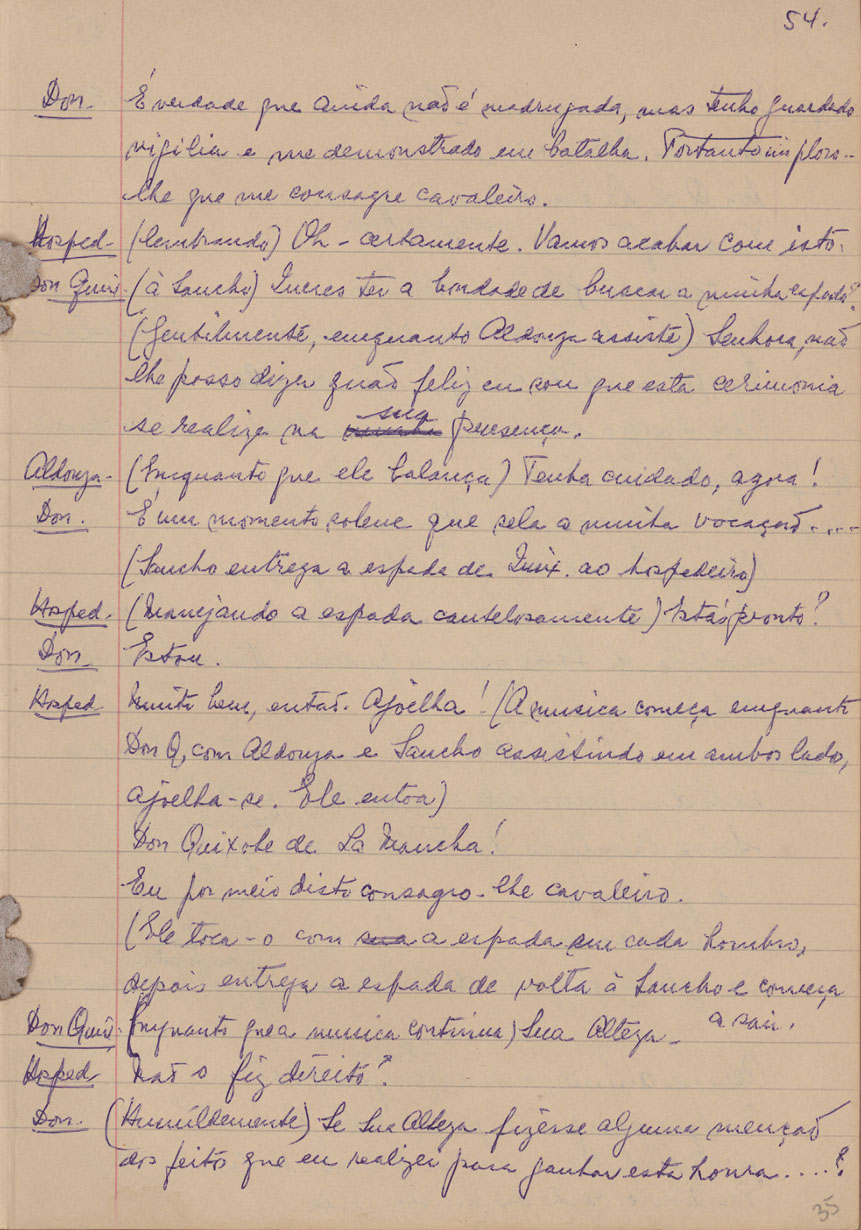 54.
Don. É verdade que ainda não é madrugada, mas tenho guardado
vigilia e me demonstrado em batalha. Portanto imploro-
lhe que me consagre cavaleiro.
Hosped. (lembrando) Oh - certamente. Vamos acabar com isto.
Don Quix. (à Sancho) Queres ter a bondade de buscar a minha espada?
(Gentilmente, emquanto Aldonza assiste) Senhora, não
lhe posso dizer quão feliz eu sou que esta cerimonia
se realize na sua presença.
Aldonza. (Enquanto que ele balança) Tenha cuidado, agora!
Don. É um momento solene que sela a minha vocação....
(Sancho entrega a espada de Quix. ao hospedeiro)
Hosped. (Manejando a espada cautelosamente) Estás pronto?
Don Estou.
Hosped Muito bem, então. Ajoelha! (A musica começa emquanto
Don Q, com Aldonza e Sancho assistindo em ambos lado,
ajoelha-se. Ele entoa)
Don Quixote de La Mancha!
Eu por meio disto consagro-lhe cavaleiro.
(Ele toca-o com sua a espada em cada hombro,
depois entrega a espada de volta à Sancho e começa
a sair.
Don Quix. Enquanto que a musica continua) Sua Alteza -
Hosped. Não o fiz direito?
Don. (Humildemente) Se Sua Alteza fizesse alguma menção
dos feitos que eu realizei para ganhar esta honra....?
35